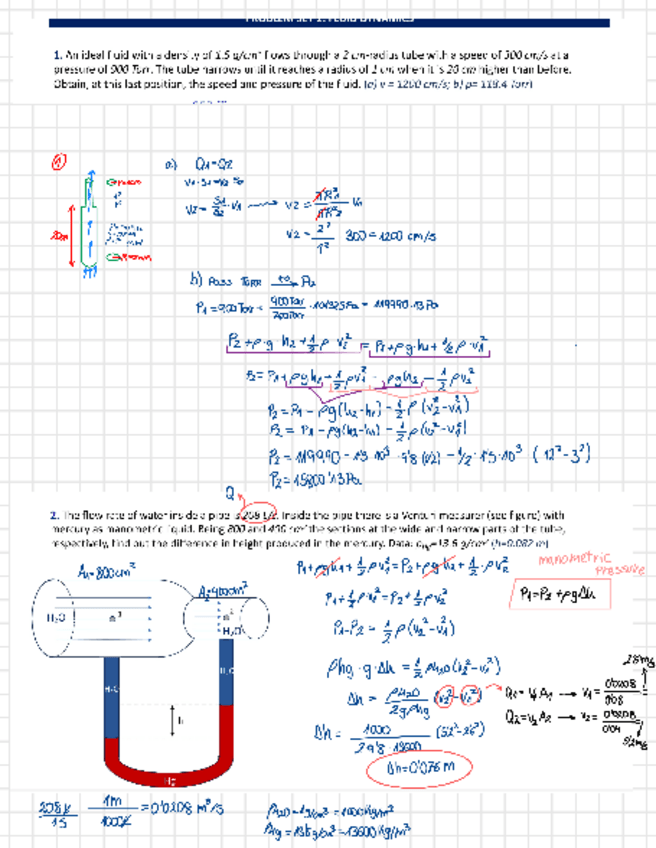 PROBLEM SET 2: FLUID DYNAMICS
1. An ideal fluid with a density of 1.5 g/cm³ flows through a 2 cm-radius tube with a speed of 300 cm/s at a
pressure of 900 Torr. The tube narrows until it reaches a radius of 1 cm when it is 20 cm higher than before.
Obtain, at this last position, the speed and pressure of the fluid. (a) v = 1200 cm/s; b) p= 118.4 Torr)
①
a) Q1=Q2
V1·S1=V2·S2
V2= S1/S2 · V1 → V2 = πR1²/πR2² V1
V2 = 2²/1² 300 = 1200 cm/s
20cm
b) PASS TORR to Pa
P1=900Torr = 900Torr/760Torr · 101325Pa = 119990'13Pa
P2+ρ·g·h2+½ρ·v2² = P1+ρg·h1+½ρ·v1²
P2=P1+ρgh1+½ρv1²-ρgh2-½ρv2²
P2=P1-ρg(h2-h1)-½ρ(v2²-v1²)
P2=P1-ρg(h2-h1)-½ρ(v2²-v1²)
P2=119990-1'5·10³·9'8(0'2)-1/2·1'5·10³(12²-3²)
P2=15800'13Pa
Q
2. The flow rate of water inside a pipe is 208 L/s. Inside the pipe there is a Venturi measurer (see figure) with
mercury as manometric liquid. Being 800 and 400 cm² the sections at the wide and narrow parts of the tube,
respectively, find out the difference in height produced in the mercury. Data: ρHg=13.6 g/cm³ (h=0.082 m)
A1=800cm²
A2=400cm²
H₂O
H₂O
H₂O
H₂O
h
Hg
P1+ρgh1+½ρv1²=P2+ρgh2+½·ρv2²
P1+½ρv1²=P2+½ρv2²
P1-P2=½ρ(v2²-v1²)
manometric
pressure
P1=P2+ρgΔh
ρhg·g·Δh=½ρH2O(v2²-v1²)
Δh= ρH2O/2gρhg (v2²-v1²)
28m/s
Q1=V1A1 → V1= 0'0208/0'08 =
Q2=V2A2 → V2= 0'0208/0'04 =
Δh= 1000/2·9'8·13600 (52²-26²)
Δh=0'076m
208l/1s 1m/1000l =0'0208 m³/s
ρH2O=1g/cm³=1000kg/m³
ρHg=13'6g/cm³=13600kg/m³